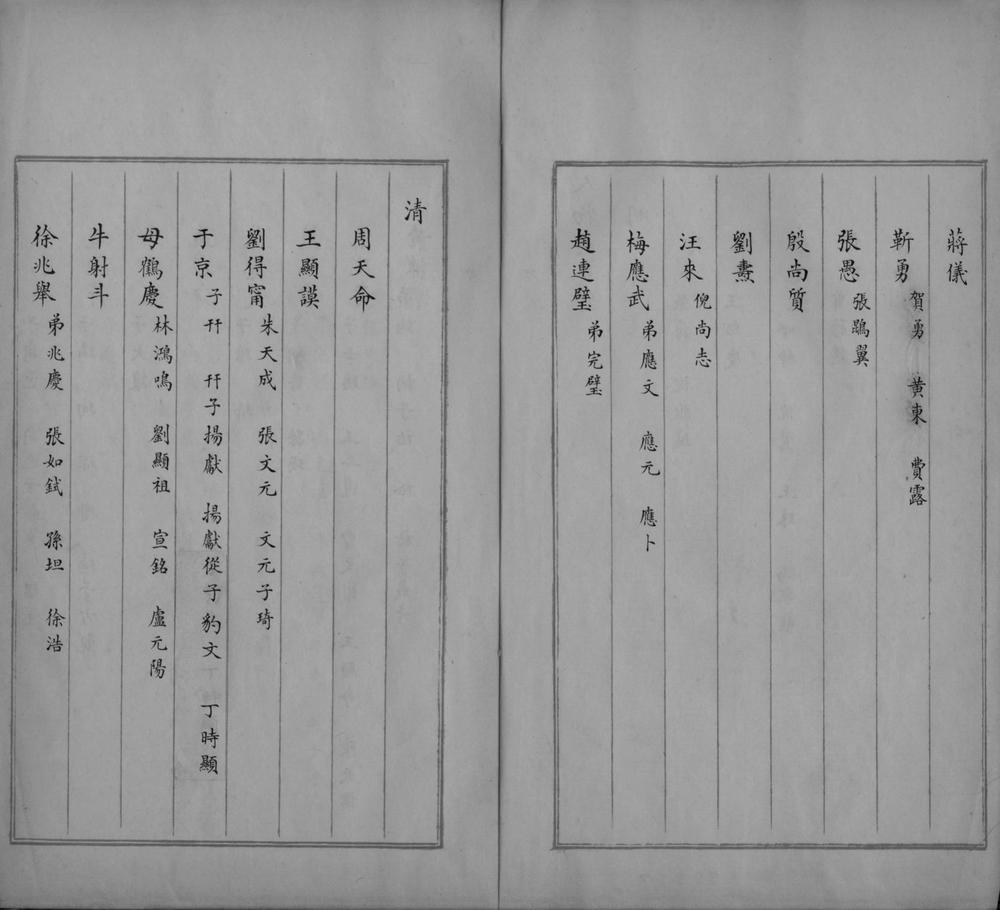 蔣儀
靳勇 賀勇 黃東 費露
張愚 張鵾翼
殷尚質
劉燾
汪來 倪尚志
梅應武 弟應文 應元 應卜
趙連璧 弟完璧
清
周天命
王顯謨
劉得甯 朱天成 張文元 文元子琦
于京 子玕 玕子揚獻 揚獻從子豹文 丁時顯
母鶴慶 林鴻鳴 劉顯祖 宣銘 盧元陽
牛射斗
徐兆舉 弟兆慶 張如鉽 孫坦 徐浩